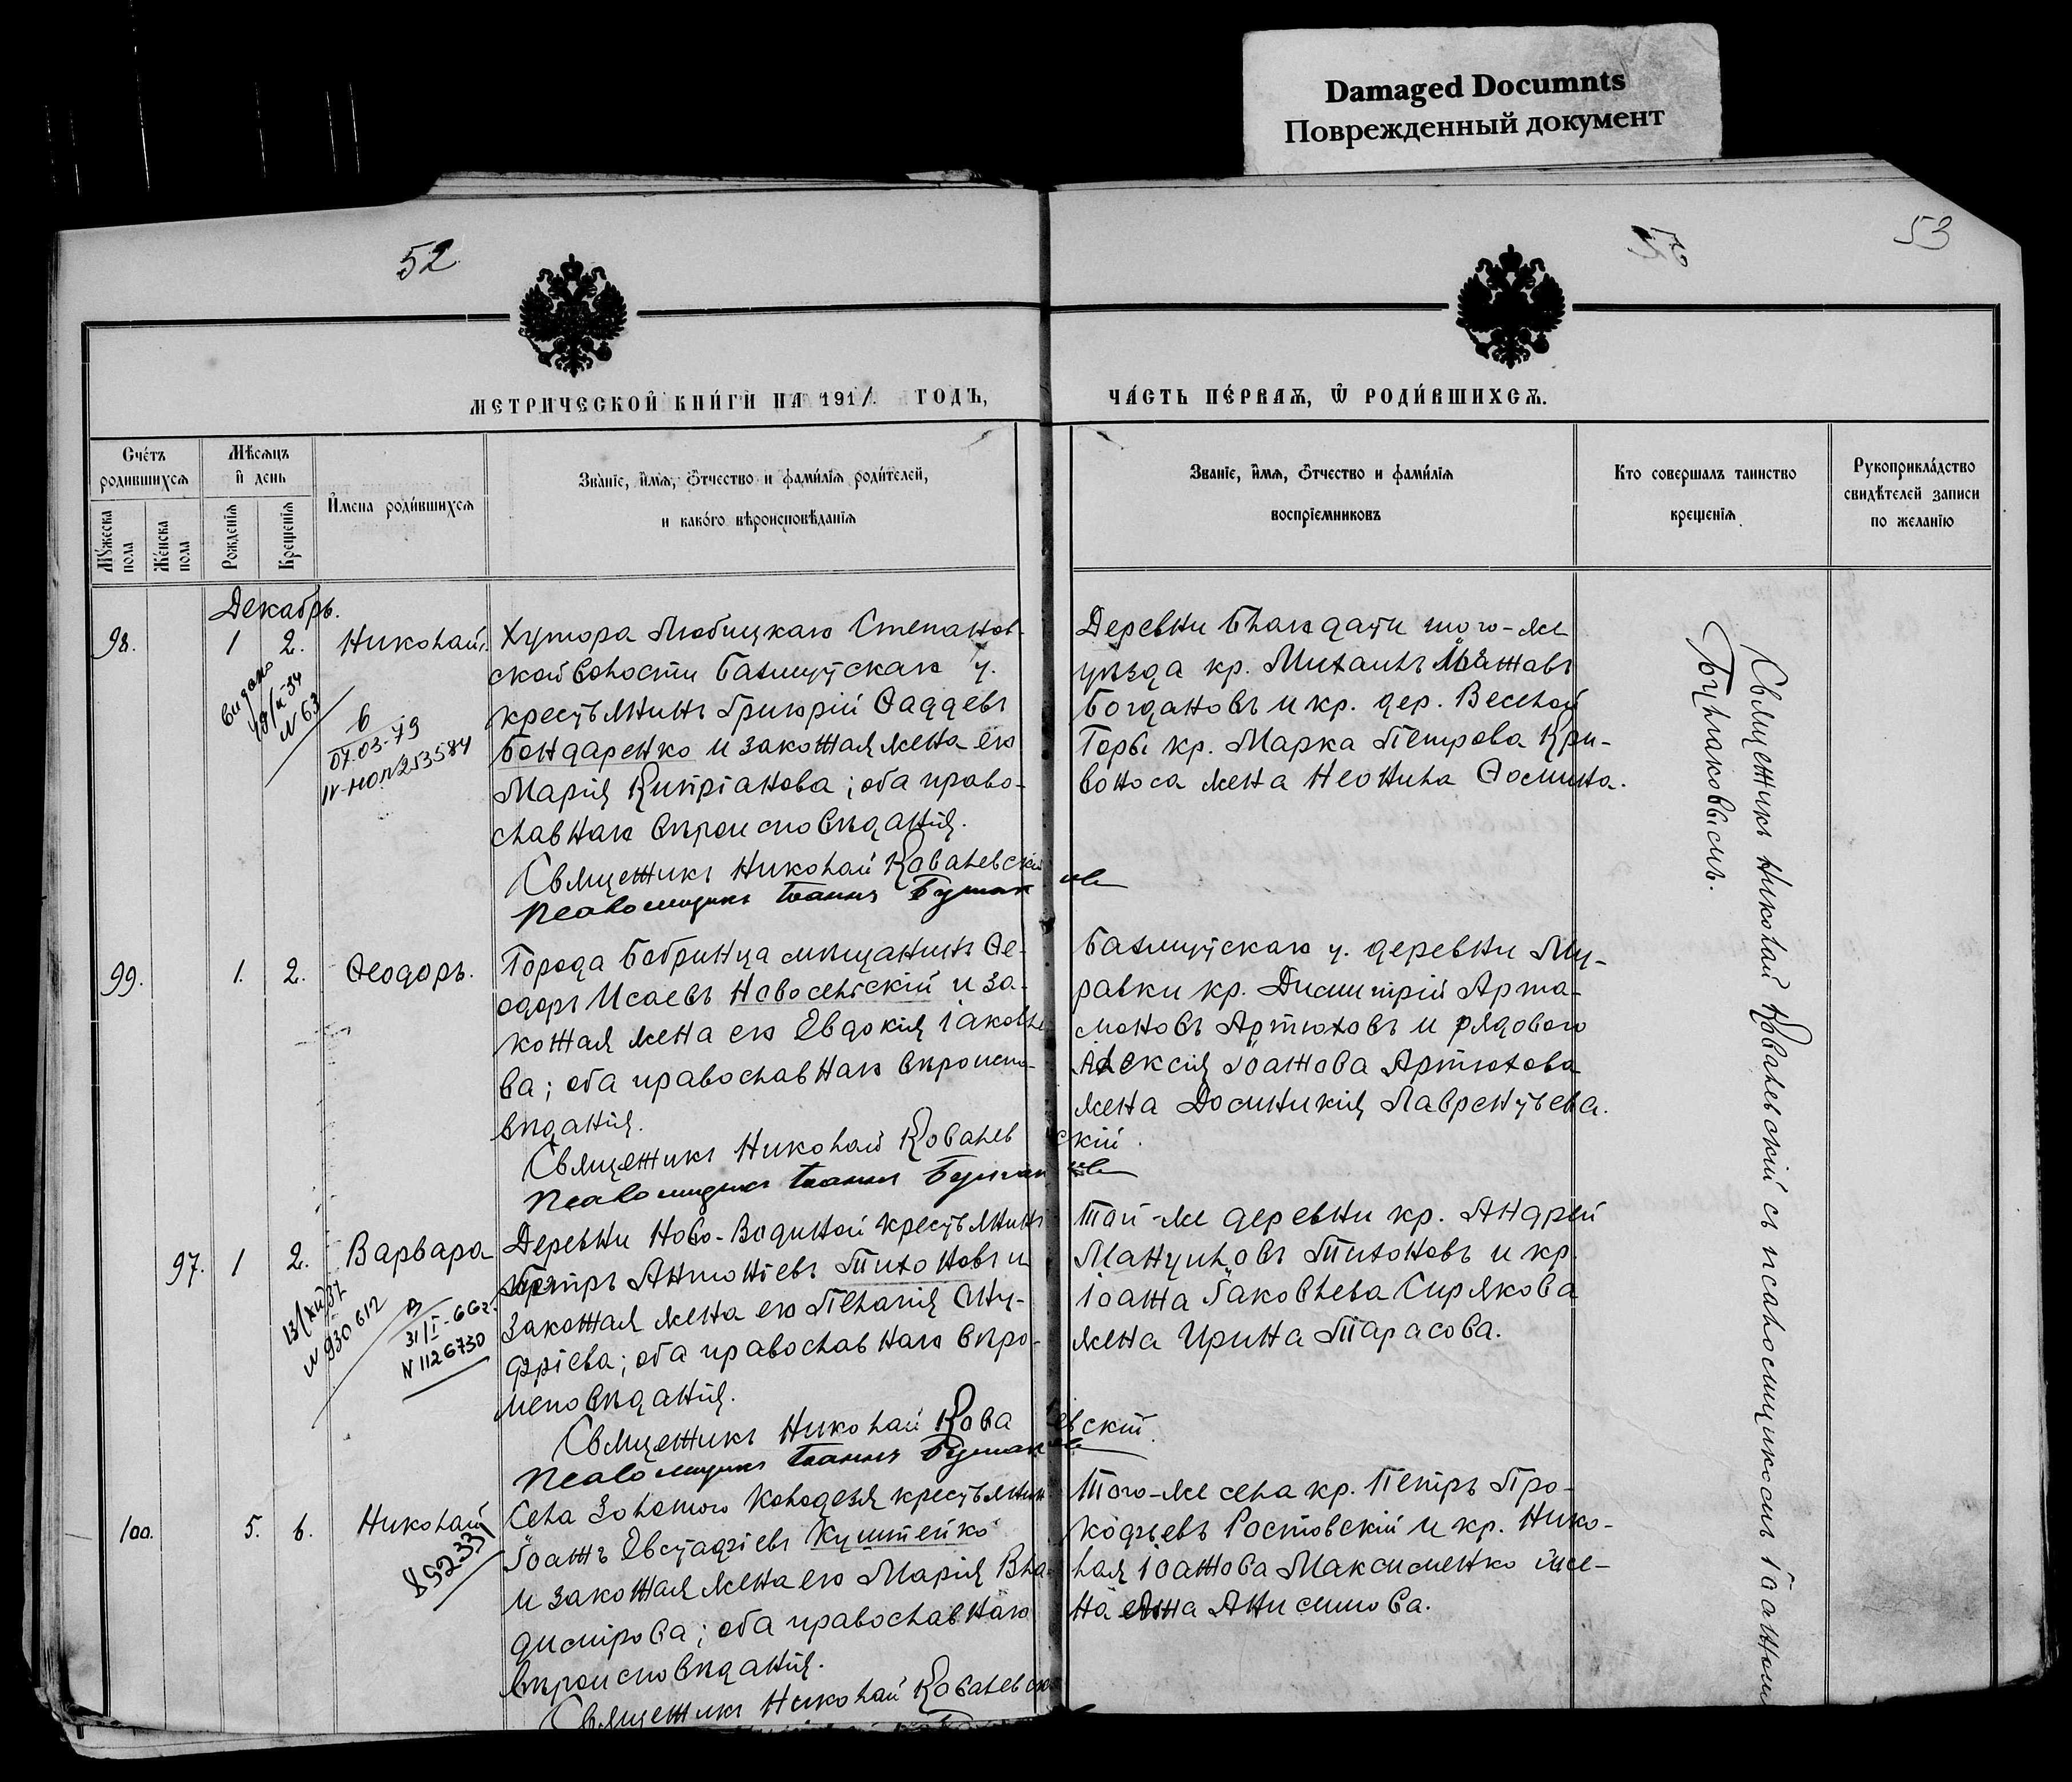 Damaged Documnts
Поврежденный документ
52
53
МЕТРИЧЕСКОЙ КНИ́ГИ НА 1911. ГОДЪ,
ЧА́СТЬ ПЕ́РВАѦ, Ѿ РОДИ́ВШИХСѦ.
Сче́тъ родившихсѧ
Мѣсѧцъ и҆ день
Му́жеска пола
Же́нска пола
Рожденїѧ
Крещенїѧ
И҆мена роди́вшихсѧ
Зва́нїе, и҆́мѧ, ѻ҆́тчество и фами́лїѧ роди́телей,
и како́го вѣроисповѣ́данїѧ
Званїе, и҆́мѧ, ѻ҆́тчество и фами́лїѧ
воспрїемниковъ
Кто совершалъ таинство
крещенїѧ
Рукоприкла́дство
свидѣ́телей записи
по желанїю
Декабрь.
98.
1
2.
Николай.
Хутора Любицкаго Степанов-
ской волости Бахмутскаго у.
крестьянинъ Григорій Ѳаддеевъ
Бондаренко и законная жена его
Марія Кипріанова; оба право-
славнаго вѣроисповѣданія.
Священникъ Николай Ковалевскій
Псаломщикъ Іоаннъ
Деревни Благодати того-же
уѣзда кр. Михаилъ
Богдановъ и кр. дер. Веселой
Горы кр. Марка Петрова Кри-
воноса жена Неонила Ѳомина.
видано
N 63
07.03-79
IV-НОЛ 253584
99.
1.
2.
Ѳеодоръ.
Города Бобринца мѣщанинъ Ѳе-
одоръ Исаевъ Новосельскій и за-
конная жена его Евдокія Іаковле
ва; оба православнаго вѣроиспо-
вѣданія.
Священникъ Николай Ковалевскій.
Псаломщикъ Іоаннъ
Бахмутскаго у. деревни Му-
равки кр. Димитрій Арта-
моновъ Артюховъ и рядового
Алексія Іоаннова Артюхова
жена Домникія Лаврентьева.
97.
1
2.
Варвара
Деревни Ново-Водиной крестьянинъ
Петръ Антоніевъ Тихоновъ и
законная жена его Пелагія Ону-
фріева; оба православнаго вѣро-
исповѣданія.
Священникъ Николай Ковалевскій.
Псаломщикъ Іоаннъ
Той-же деревни кр. Андрей
Мануиловъ Тихоновъ и кр.
Іоанна Іаковлева Сирякова
жена Ирина Тарасова.
N 930612
31/I-66г.
N 1126730
100.
5.
6.
Николай
892339
Села Золотого Колодезя крестьянин
Іоаннъ Евстафіевъ Куштейко
и законная жена его Марія Вла-
димірова; оба православнаго
вѣроисповѣданія.
Священникъ Николай Ковалевскій
Того-же села кр. Петръ Про-
кофіевъ Ростовскій и кр. Нико-
лая Іоаннова Максименко же-
на Анна Анисимова.
Священникъ Николай Ковалевскій съ псаломщикомъ Іоанномъ